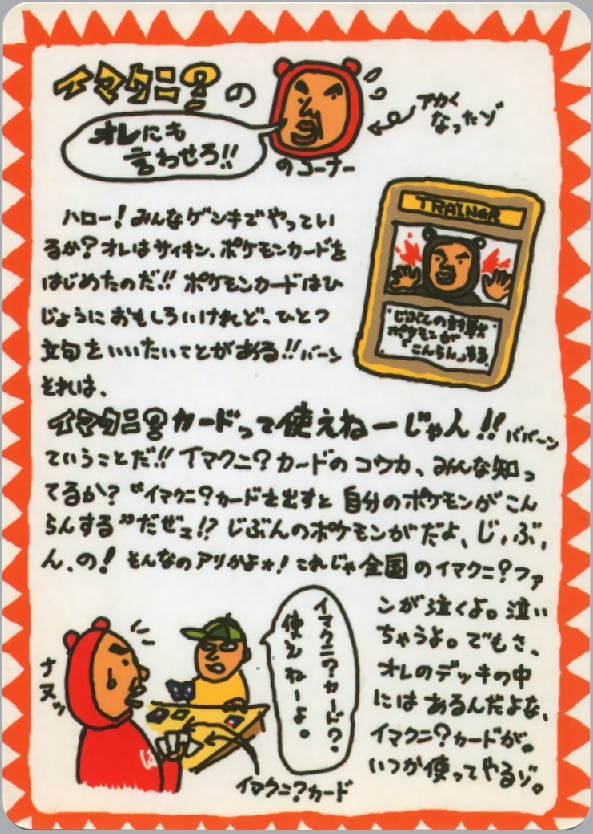 イマクニ？の
オレにも
言わせろ!!
のコーナー
アカく
なったゾ
ハロー！みんなゲンキでやってい
るか？オレはサイキン、ポケモンカードを
はじめたのだ!!ポケモンカードはひ
じょうにおもしろいけれど、ひとつ
文句をいいたいことがある!!バーン
それは、
イマクニ？カードって使えねーじゃん!!ババーン
ていうことだ!!イマクニ？カードのコウカ、みんな知っ
てるか？“イマクニ？カードを出すと自分のポケモンがこん
らんする”だぜェ!?じぶんのポケモンがだよ、じ、ぶ、
ん、の！そんなのアリかよォ！これじゃ全国のイマクニ？ファ
ンが泣くよ。泣い
ちゃうよ。でもさ、
オレのデッキの中
にはあるんだよな、
イマクニ？カードが。
いつか使ってやるゾ。
TRAINER
じぶんの
ポケモンが
「こんらん」する
イマクニ？カード？
使えねーよ。
ナヌッ
イマクニ？カード